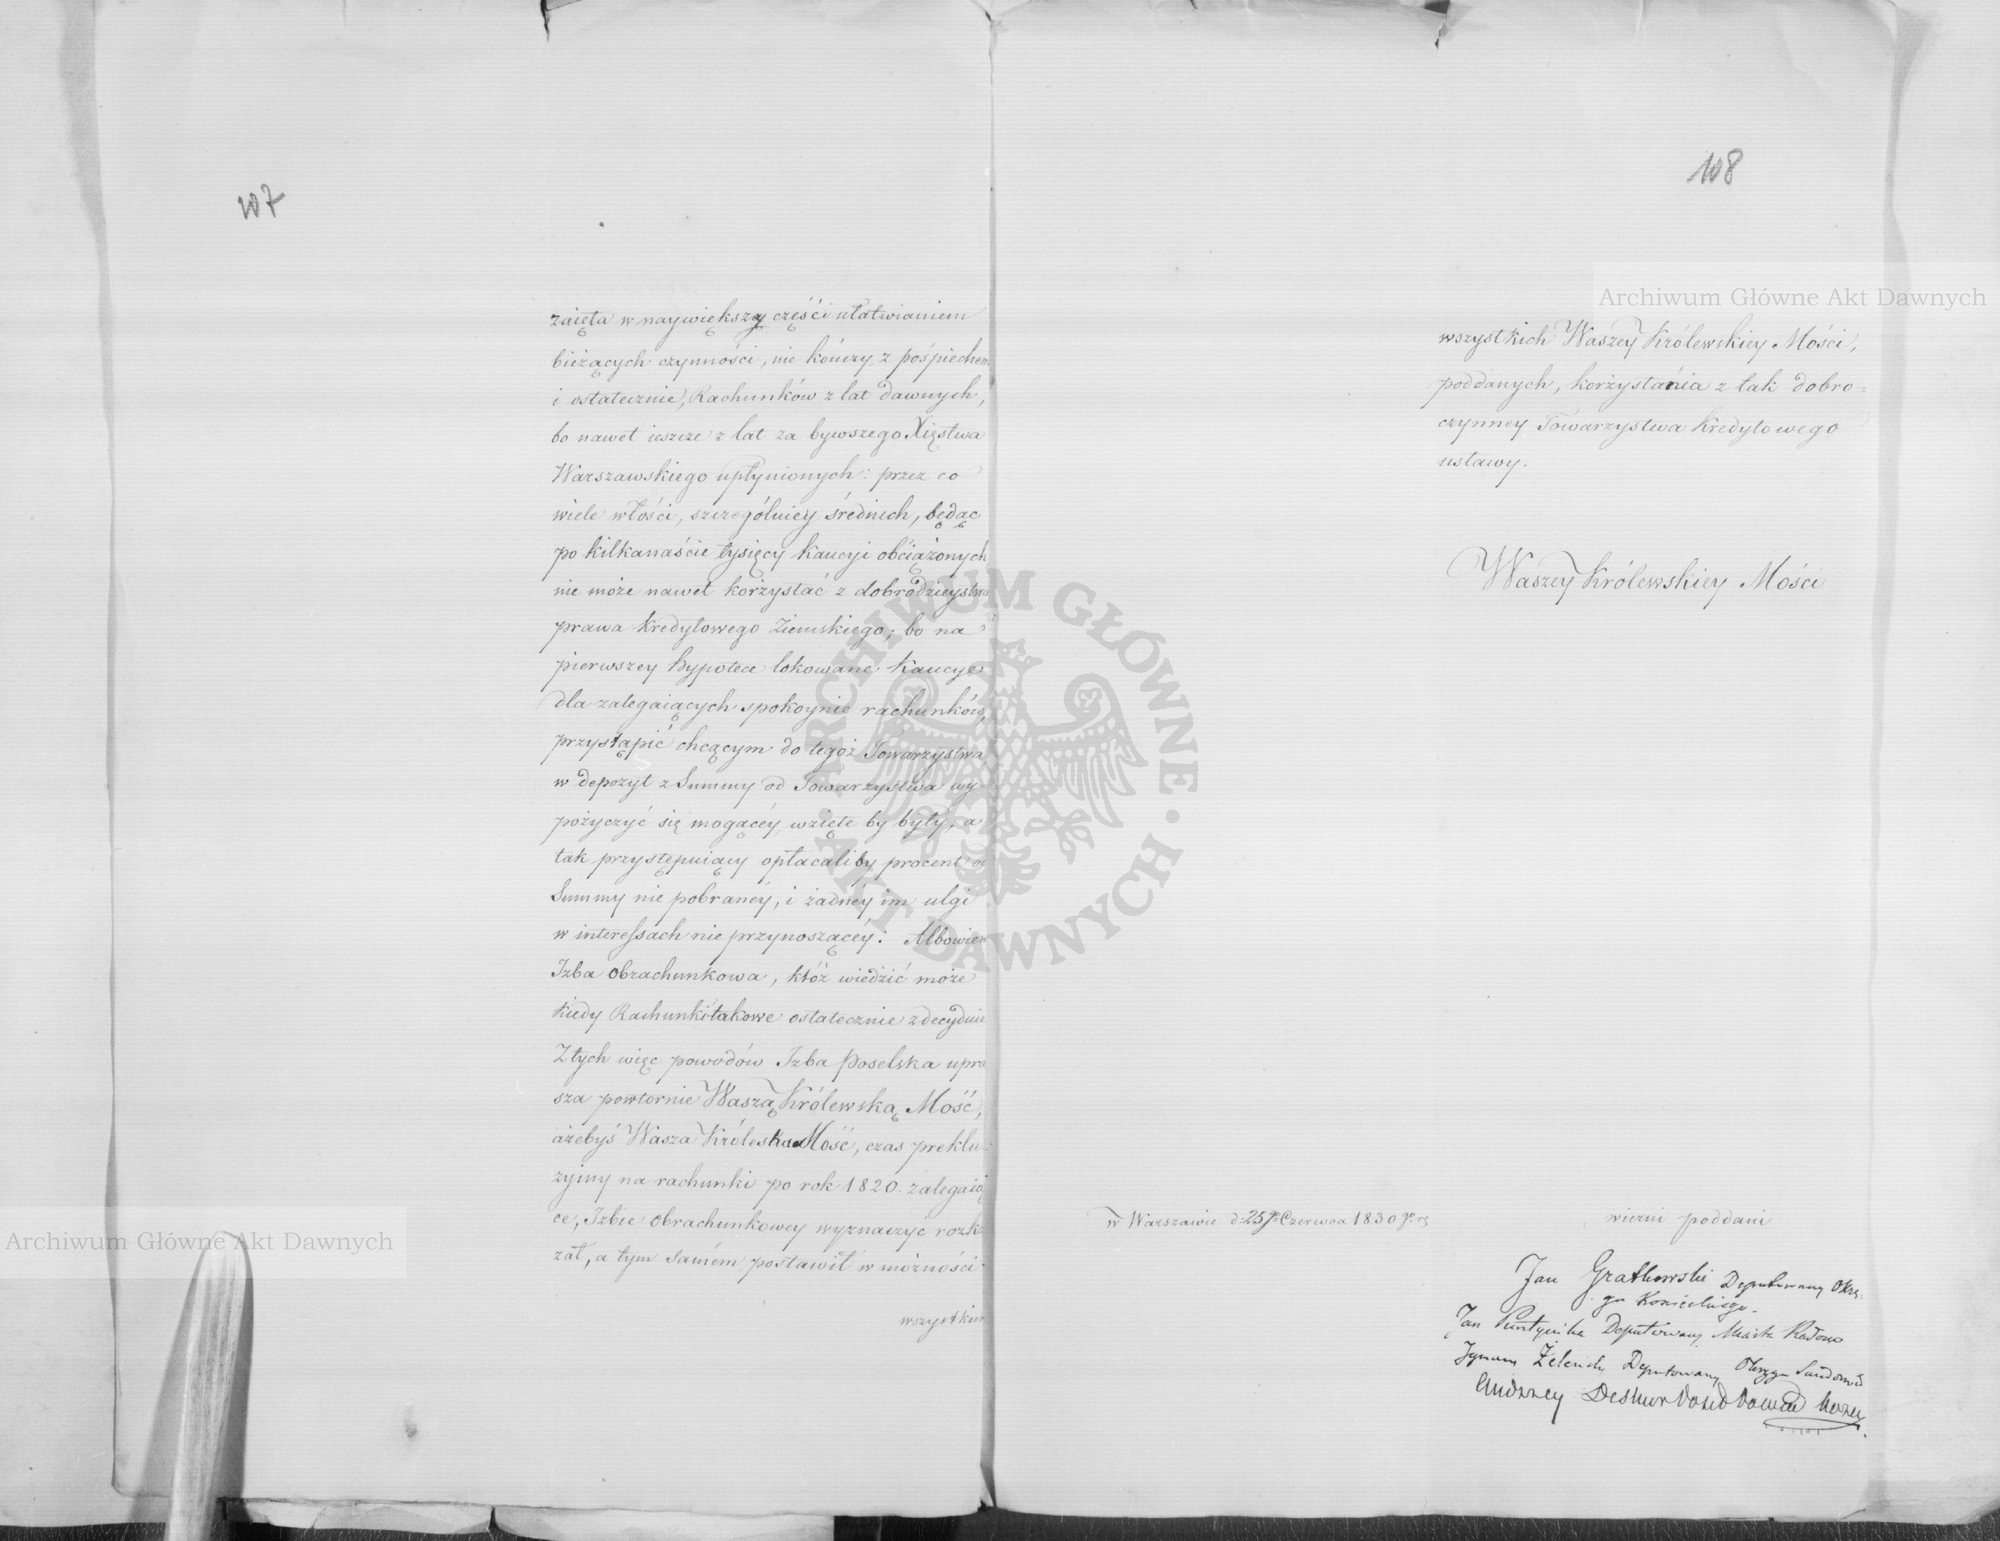 107
zaięta w naywiększy częśći ułatwianiem
bieżących czynności, nie kończy, z pośpiechem
i ostatecznie, Rachunków z lat dawnych,
bo nawet ieszcze z lat za bywszego Xięstwa
Warszawskiego upłynionych: przez co
wiele włości, szczególniey średnich, będąc
po kilkanaście tysięcy kaucyi obciążonych
nie może nawet korzystać z dobrodzieystwa
prawa Kredytowego Ziemskiego; bo na
pierwszey hypotece lokowane kaucye
dla zalegaiących spokoynie rachunków,
przystąpić chcącym do tegoż Towarzystwa
w depozyt z Summy od Towarzystwa wy
pożyczyć się mogącéy, wzięte by były, a
tak przystępuiący opłacaliby procent od
Summy nie pobranéy, i żadnéy im ulgi
w interessach nie przynoszącéy: Albowiem
Izba Obrachunkowa, któż wiedzić może
kiedy Rachunki takowe ostatecznie zdecyduie
Z tych więc powodów Izba Poselska upra
sza powtornie Waszą Królewską Mość,
ażebyś Wasza Króleska Mość, czas preklu:
zyiny na rachunki po rok 1820 zalegaią
ce, Izbie Obrachunkowey wyznaczyć rozka
zał, a tym samém postawił w możności
wszystkich
108
wszystkich Waszey Królewskiey Mości,
poddanych, korzystania z tak dobro=
czynney Towarzystwa Kredytowego
ustawy.
Waszey Królewskiey Mości
w Warszawie d: 25go Czerwca 1830 go r.
wierni poddani
Jan Gratkowski Deputowany Okrę-
gu
Jan Deputowany Miasta Radom
Deputowany Okręgu Sandomi
Andrzey Deskur
Archiwum Główne Akt Dawnych
Archiwum Główne Akt Dawnych
ARCHIWUM GŁÓWNE
AKT DAWNYCH